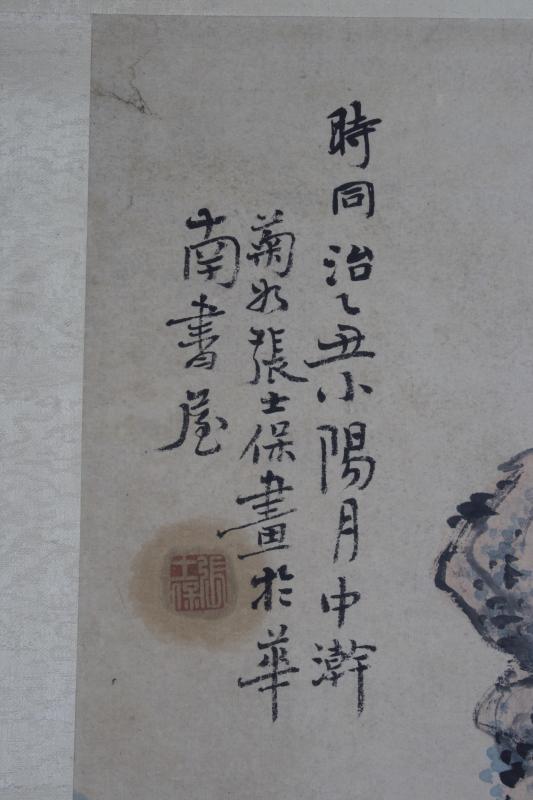 時同治乙丑小陽月中澣
菊如張士保畫於華
南書屋
張士保